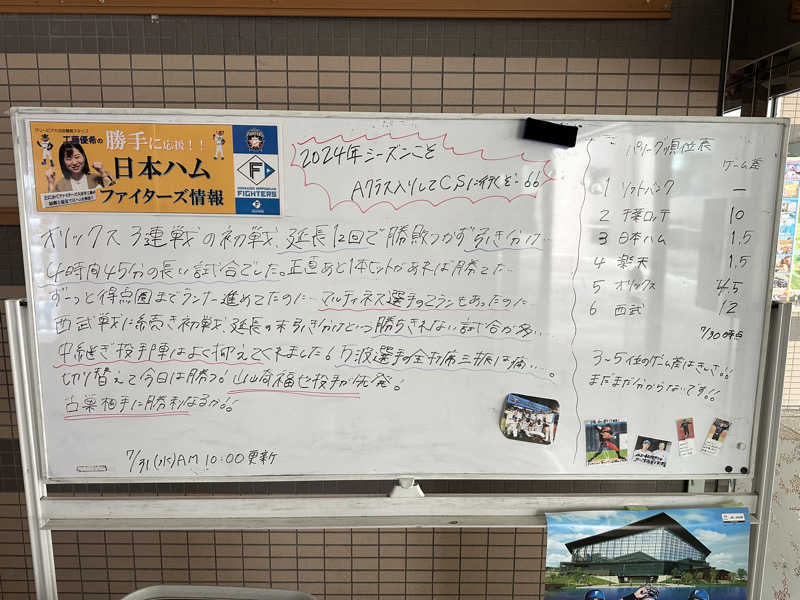 工藤優希の
勝手に応援!!
日本ハム
ファイターズ情報
FIGHTERS
2024年シーズンこそ
Aクラス入りしてCSに行くぞ〜!!
オリックス3連戦の初戦、延長12回で勝敗つかず引き分け…
4時間45分の長い試合でした。正直あと1本ヒットがあれば勝てた…
ずーっと得点圏までランナー進めてたのに…マルティネス選手の2ランもあったのに…
西武戦に続き初戦、延長の末引き分けという勝ちきれない試合が多い…
中継ぎ投手陣はよく抑えてくれました!万波選手の全打席三振は痛い…。
切り替えて今日は勝つ!山﨑福也投手が先発!
古巣相手に勝利なるか!!
7/31(水)AM 10:00更新
パ・リーグ順位表
ゲーム差
1 ソフトバンク ー
2 千葉ロッテ 10
3 日本ハム 1.5
4 楽天 1.5
5 オリックス 4.5
6 西武 12
7/30時点
3〜5位のゲーム差は!!
まだまだ分からないです!!